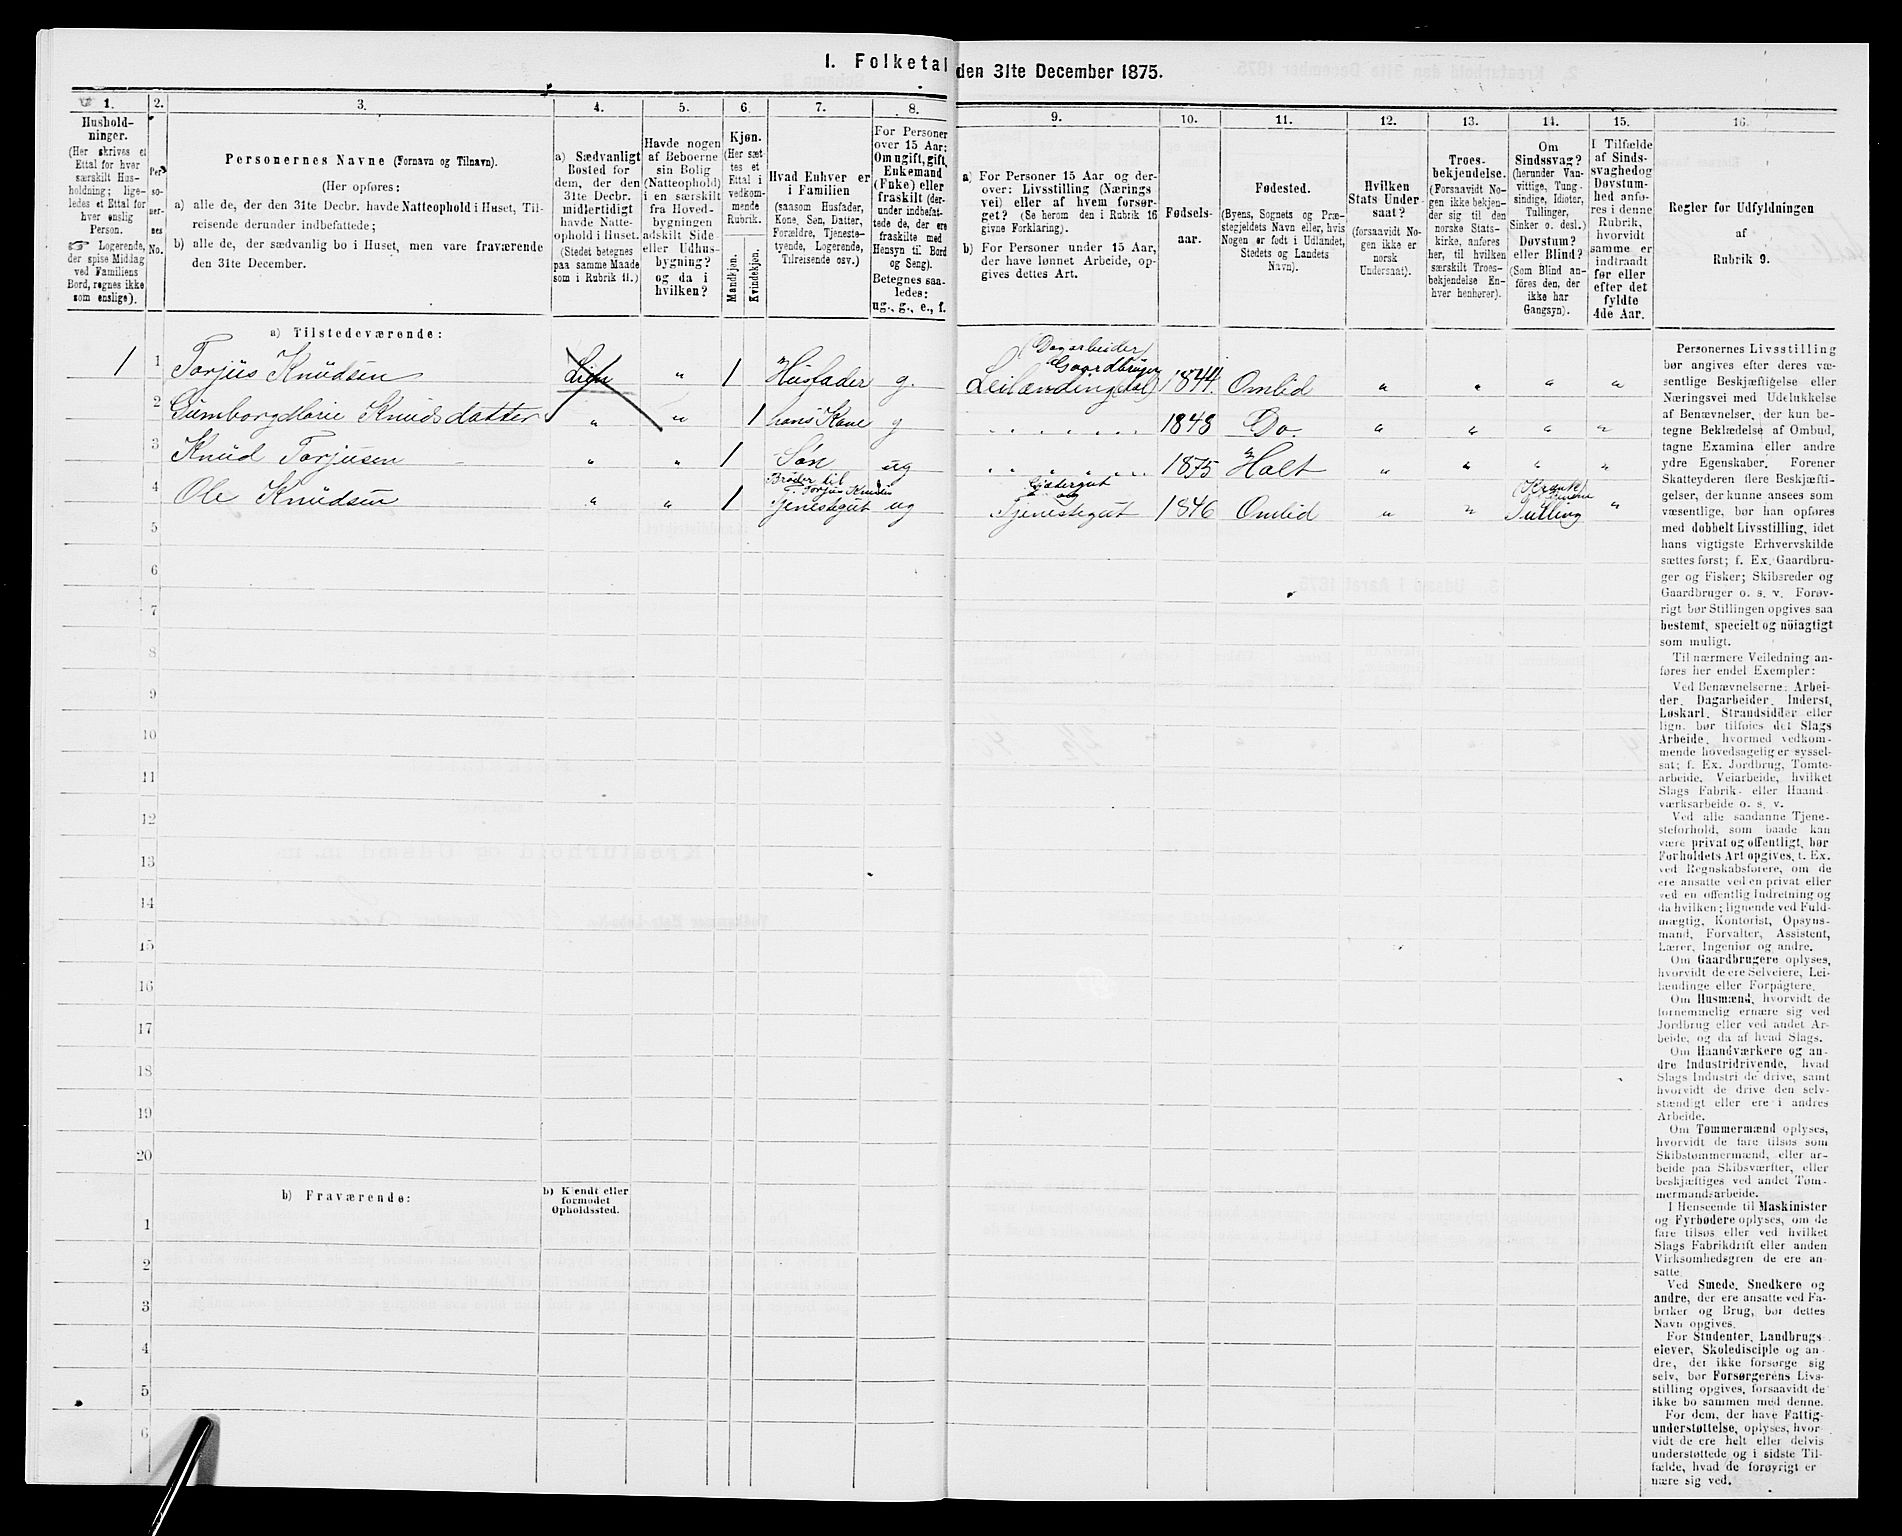 1. Folketal den 31te December 1875.
1.
Hushold-
ninger.
(Her skrives et
Ettal for hver
særskilt Hus-
holdning; lige-
ledes et Ettal for
hver enslig
Person.
☞ Logerende,
der spise Middag
ved Familiens
Bord, regnes ikke
som enslige).
2.
Per-
so-
ner-
nes
No.
3.
Personernes Navne (Fornavn og Tilnavn).
(Her opføres:
a) alle de, der den 31te Decbr. havde Natteophold i Huset, Til-
reisende derunder indbefattede;
b) alle de, der sædvanlig bo i Huset, men vare fraværende
den 31te December.
4.
a) Sædvanligt
Bosted for
dem, der den
31te Decbr.
midlertidigt
havde Natte-
ophold i Huset.
(Stedet betegnes
paa samme Maade
som i Rubrik 11.)
5.
Havde nogen
af Beboerne
sin Bolig
(Natteophold)
i en særskilt
fra Hoved-
bygningen
adskilt Side
eller Udhus-
bygning?
og da i
hvilken?
6.
Kjøn.
(Her sæt-
tes et
Ettal i
vedkom-
mende
Rubrik.
Mandkjøn.
Kvindekjøn.
7.
Hvad Enhver er
i Familien
(saasom Husfader,
Kone, Søn, Datter,
Forældre, Tjeneste-
tyende, Logerende,
Tilreisende osv.)
8.
For Personer
over 15 Aar:
Om ugift, gift,
Enkemand
(Enke) eller
fraskilt (der-
under indbefat-
tede de, der ere
fraskilte med
Hensyn til Bord
og Seng).
Betegnes saa-
ledes:
ug., g., e., f.
9.
a) For Personer 15 Aar og der-
over: Livsstilling (Nærings
vei) eller af hvem forsør-
get? (Se herom den i Rubrik 16
givne Forklaring).
b) For Personer under 15 Aar,
der have lønnet Arbeide, op-
gives dettes Art.
10.
Fødsels-
aar.
11.
Fødested.
(Byens, Sognets og Præ-
stegjeldets Navn eller, hvis
Nogen er født i Udlandet,
Stedets og Landets
Navn).
12.
Hvilken
Stats Under
saat?
(forsaavidt No-
gen ikke er
norsk
Undersaat).
13.
Troes-
bekjendelse.
(Forsaavidt No-
gen ikke bekjen-
der sig til den
norske Stats-
kirke, anføres
her, til hvilken
særskilt Troes-
bekjendelse En-
hver henhører).
14.
Om
Sindssvag?
(herunder Van-
vittige, Tung-
sindige, Idioter,
Tullinger,
Sinker o. desl.)
Døvstum?
eller Blind?
(Som Blind an-
føres den, der
ikke har
Gangsyn).
15.
I Tilfælde
af Sinds-
svaghed og
Døvstum-
hed anfø-
res i denne
Rubrik,
hvorvidt
samme er
indtraadt
før eller
efter det
fyldte
4de Aar.
16.
Regler for Udfyldningen
af
Rubrik 9.
a) Tilstedeværende:
1 1 Torjus Knudsen Lien " 1 Husfader g. Dagarbeider Gaardbruger Leilænding 1844. Omlid " " " "
2 Gumborg Marie Knudsdatter " " 1 hans Kone g 1848 Do. " " " "
3 Knud Torjusen " " 1 Søn ug 1875 Holt " " " "
4 Ole Knudsen " " 1 Broder til T. Torjus Knudsen Tjenestegut ug og Tjenestegut 1846 Omlid " " Tulling "
5
6
7
8
9
10
11
12
13
14
15
16
17
18
19
20
b) Fraværende:
b) Kjendt eller
formodet
Opholdssted.
1
2
3
4
5
6
Personernes Livsstilling
bør angives efter deres væ-
sentlige Beskjæftigelse eller
Næringsvei med Udelukkelse
af Benævnelser, der kun be-
tegne Beklædelse af Ombud,
tagne Examina eller andre
ydre Egenskaber. Forener
Skatteyderen flere Beskjæfti-
gelser, der kunne ansees som
væsentlige, bør han opføres
med dobbelt Livsstilling, idet
hans vigtigste Erhvervskilde
sættes først; f. Ex. Gaardbru-
ger og Fisker; Skibsreder og
Gaardbruger o. s. v. Forøv-
rigt bør Stillingen opgives saa
bestemt, specielt og nöiagtigt
som muligt.
Til nærmere Veiledning an-
føres her endel Exempler:
Ved Benævnelserne: Arbei-
der, Dagarbeider, Inderst,
Løskarl, Strandsidder eller
lign. bør tilføies det Slags
Arbeide, hvormed vedkom-
mende hovedsagelig er syssel-
sat; f. Ex. Jordbrug, Tomte-
arbeide, Veiarbeide, hvilket
Slags Fabrik- eller Haand-
værksarbeide o. s. v.
Ved alle saadanne Tjene-
steforhold, som baade kan
være privat og offentligt, bør
Forholdets Art opgives, t. Ex.
ved Regnskabsførere, om de
ere ansatte ved en privat eller
ved en offentlig Indretning og
da hvilken; lignende ved Fuld-
mægtig, Kontorist, Opsyns-
mand, Forvalter, Assistent,
Lærer, Ingeniør og andre.
Om Gaardbrugere oplyses,
hvorvidt de ere Selveiere, Lei-
lændinge eller Forpagtere.
Om Husmænd, hvorvidt de
fornemmelig ernære sig ved
Jordbrug eller ved andet Ar-
beide, og da af hvad Slags.
Om Haandværkere og an-
dre Industridrivende, hvad
Slags Industri de drive, samt
hvorvidt de drive den selv-
stændigt eller ere i andres
Arbeide.
Om Tømmermænd oplyses,
hvorvidt de fare tilsøs som
Skibstømmermænd, eller ar-
beide paa Skibsværfter, eller
beskjæftiges ved andet Tøm-
mermandsarbeide.
I Henseende til Maskinister
og Fyrbødere oplyses, om de
fare tilsøs eller ved hvilket
Slags Fabrikdrift eller anden
Virksomhedsgren de ere an-
satte.
Ved Smede, Snedkere og
andre, der ere ansatte ved Fa-
briker og Brug, bør dettes
Navn opgives.
For Studenter, Landbrugs-
elever, Skoledisciple og an-
dre, der ikke forsørge sig
selv, bør Forsørgerens Livs-
stilling opgives, forsaavidt de
ikke bo sammen med denne.
For dem, der have Fattig-
understøttelse, oplyses, hvor-
vidt de ere helt eller delvis
understøttede og i sidste Til-
fælde, hvad de forøvrigt er-
nære sig ved.